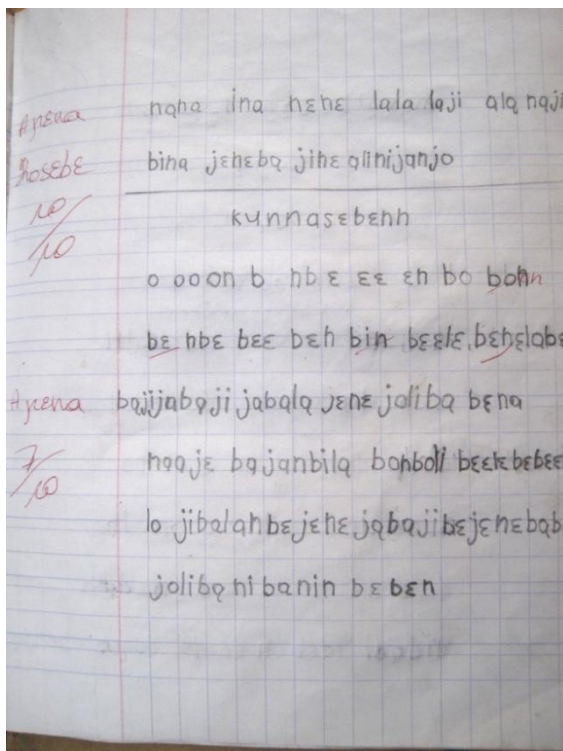 Aɲɛna naна ina nɛnɛ lala laji ala naji
Rosɛbɛ bina jɛnɛba jinɛ alinijanjo
10/10
kunnasɛbɛnn
o o o on b nb ɛ ɛɛ ɛn bo bonn
bɛ nbɛ bɛɛ bɛn bin bɛɛlɛ, bɛnɛlabɛ
Aɲɛna bajijabaji jabala jɛnɛ joliba bɛna
7/10 naajɛ bajanbila bonboli bɛɛlɛ bɛbɛɛ
lo jibalanbɛ jɛnɛ jabajibɛjɛnɛbab
joliba ni banin bɛ bɛn